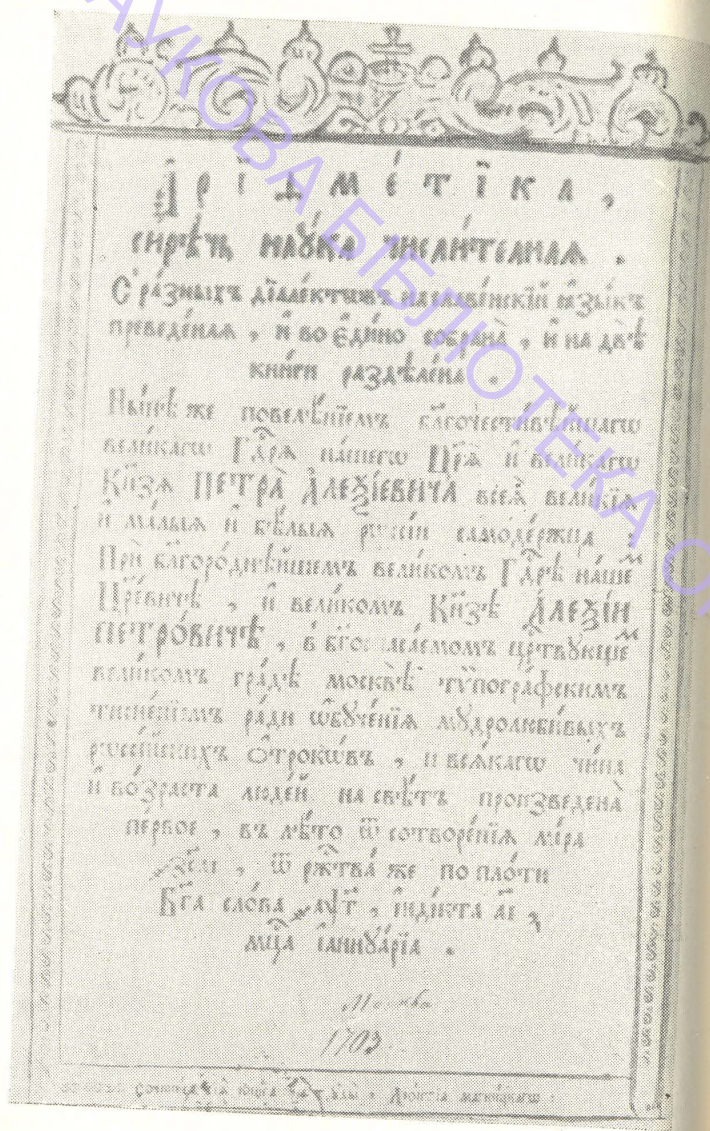 А҆рїѳме́тїка,
сирѣ́чь наꙋ́ка числи́телнаѧ.
С̾ ра́зныхъ дїале́ктѡвъ на славе́нскїй ꙗ҆зы́къ
преведе́наѧ, и҆ во є҆ди́но собрана̀, и҆ на двѣ̀
кни́ги раздѣлена̀.
Ны́нѣ же повелѣ́нїемъ бл҃гочести́вѣйшагѡ
вели́кагѡ Гдⷭ҇рѧ на́шегѡ Цр҃ѧ̀ и҆ вели́кагѡ
Кнѧ҃зѧ ПЕТРА̀ А҆ЛЕѮІ́ЕВИЧА всеѧ̀ вели́кїѧ
и҆ ма́лыѧ и҆ бѣ́лыѧ рѡссі́и самоде́ржца:
Прѝ бл҃горо́днѣйшемъ вели́комъ Гдⷭ҇рѣ на́шеⷨ
Цр҃е́вичѣ, и҆ вели́комъ Кнѧ҃зѣ А҆ЛЕѮІ́И
ПЕТРО́ВИЧѢ, в̾ бг҃оспаса́емомъ црⷭ҇твꙋющеⷨ
вели́комъ гра́дѣ москвѣ̀ тѷпогра́фскимъ
тисне́нїемъ ра́ди ѡ҆бꙋче́нїѧ мꙋдролюби́выхъ
рѡссі́йскихъ Ѻ҆́трокѡвъ, и҆ всѧ́кагѡ чи́на
и҆ во́зраста люде́й на свѣ́тъ произведена̀
пе́рвое, въ лѣ́то ѿ сотворе́нїѧ мі́ра
҂зс҃аі, ѿ ржⷭ҇тва́ же по пло́ти
Бг҃а сло́ва ҂аѱ҃г, і҆ндї́кта а҃і,
мцⷭ҇а і҆аннꙋа́рїа.
Москва
1703
Сочинисѧ сїѧ книга чрез трꙋды Леонтїа магницкагѡ.
НАУКОВА БІБЛІОТЕКА О